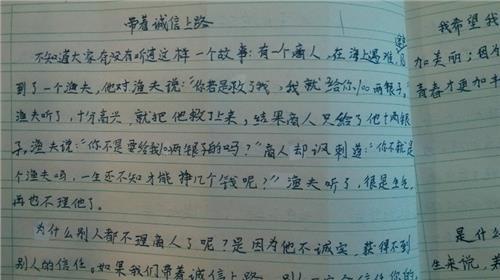 带着诚信上路
不知道大家有没有听过这样一个故事:有一个商人,在海上遇难,遇
到了一个渔夫,他对渔夫说:"你若是救了我,我就给你100两银子。"
渔夫听了,十分高兴,就把他救了上来,结果商人只给了他十两银
子。渔夫说:"你不是要给我100两银子的吗?"商人却讽刺道:"你不就是
个渔夫吗,一生还不知才能挣几个钱呢?"渔夫听了,很是生气,
再也不理他了。
为什么别人都不理商人了呢?是因为他不诚实,获得不到
别人的信任。如果我们带着诚信上路,别人
我希望我
加美丽;因为
青春才更加
是什么
生来说,